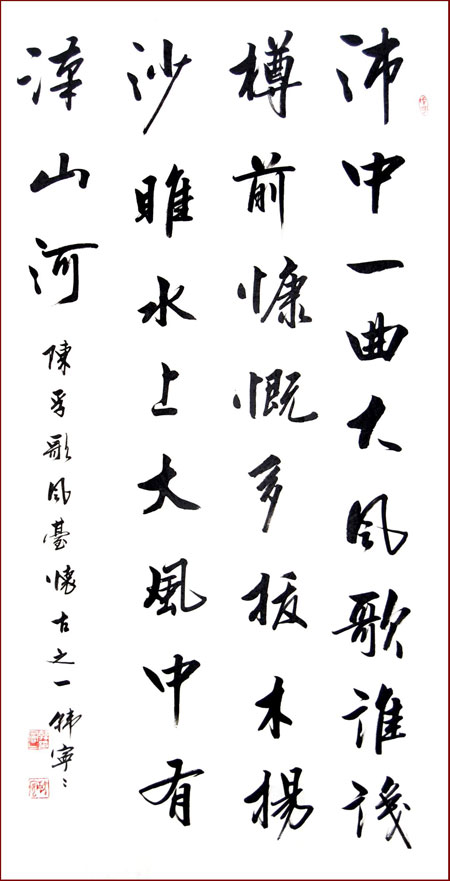 沛中一曲大风歌誰識
樽前慷慨多拔木揚
沙睢水上大風中有
漢山河
陳孚歌风臺懷古之一韩寧〻